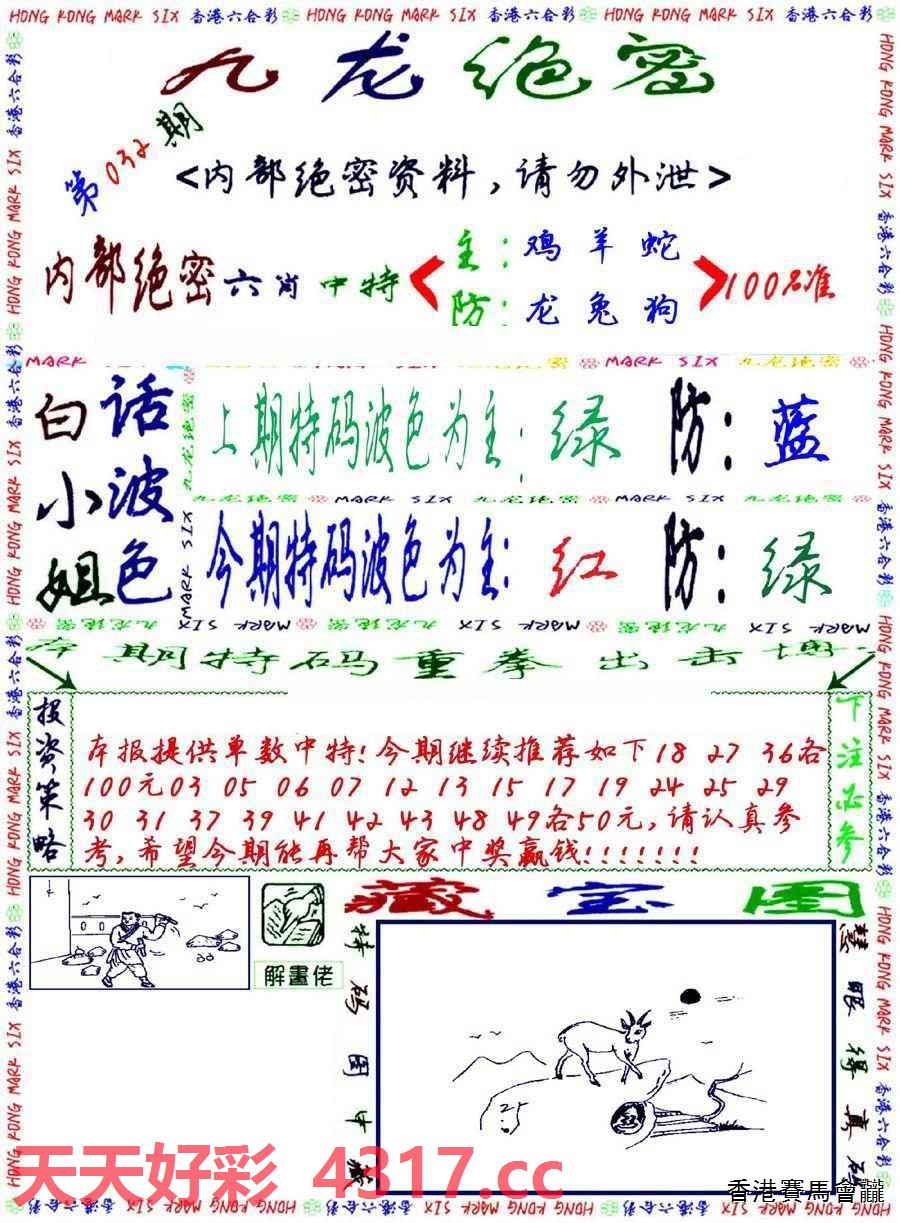 HONG KONG MARK SIX 香港六合彩 HONG KONG MARK SIX 香港六合彩 HONG KONG MARK SIX 香港六合彩
九龙绝密
第032期
<内部绝密资料,请勿外泄>
内部绝密六肖中特
主:鸡羊蛇
防:龙兔狗
100%准
MARK
MARK SIX 九龙绝密
白小姐
话波色
上期特码波色为主:绿 防:蓝
九龙绝密 MARK SIX 九龙绝密 MARK SIX 九龙绝密
今期特码波色为主:红 防:绿
本期特码重拳出击博
投资策略
本报提供单数中特!今期继续推荐如下18 27 36各
100元03 05 06 07 12 13 15 17 19 24 25 29
30 31 37 39 41 42 43 48 49各50元,请认真参
考,希望今期能再帮大家中奖赢钱!!!!!!!
下注必参
解畫佬
藏宝图
特码图中
慧眼得真
25
天天好彩 4317.cc
香港賽馬會